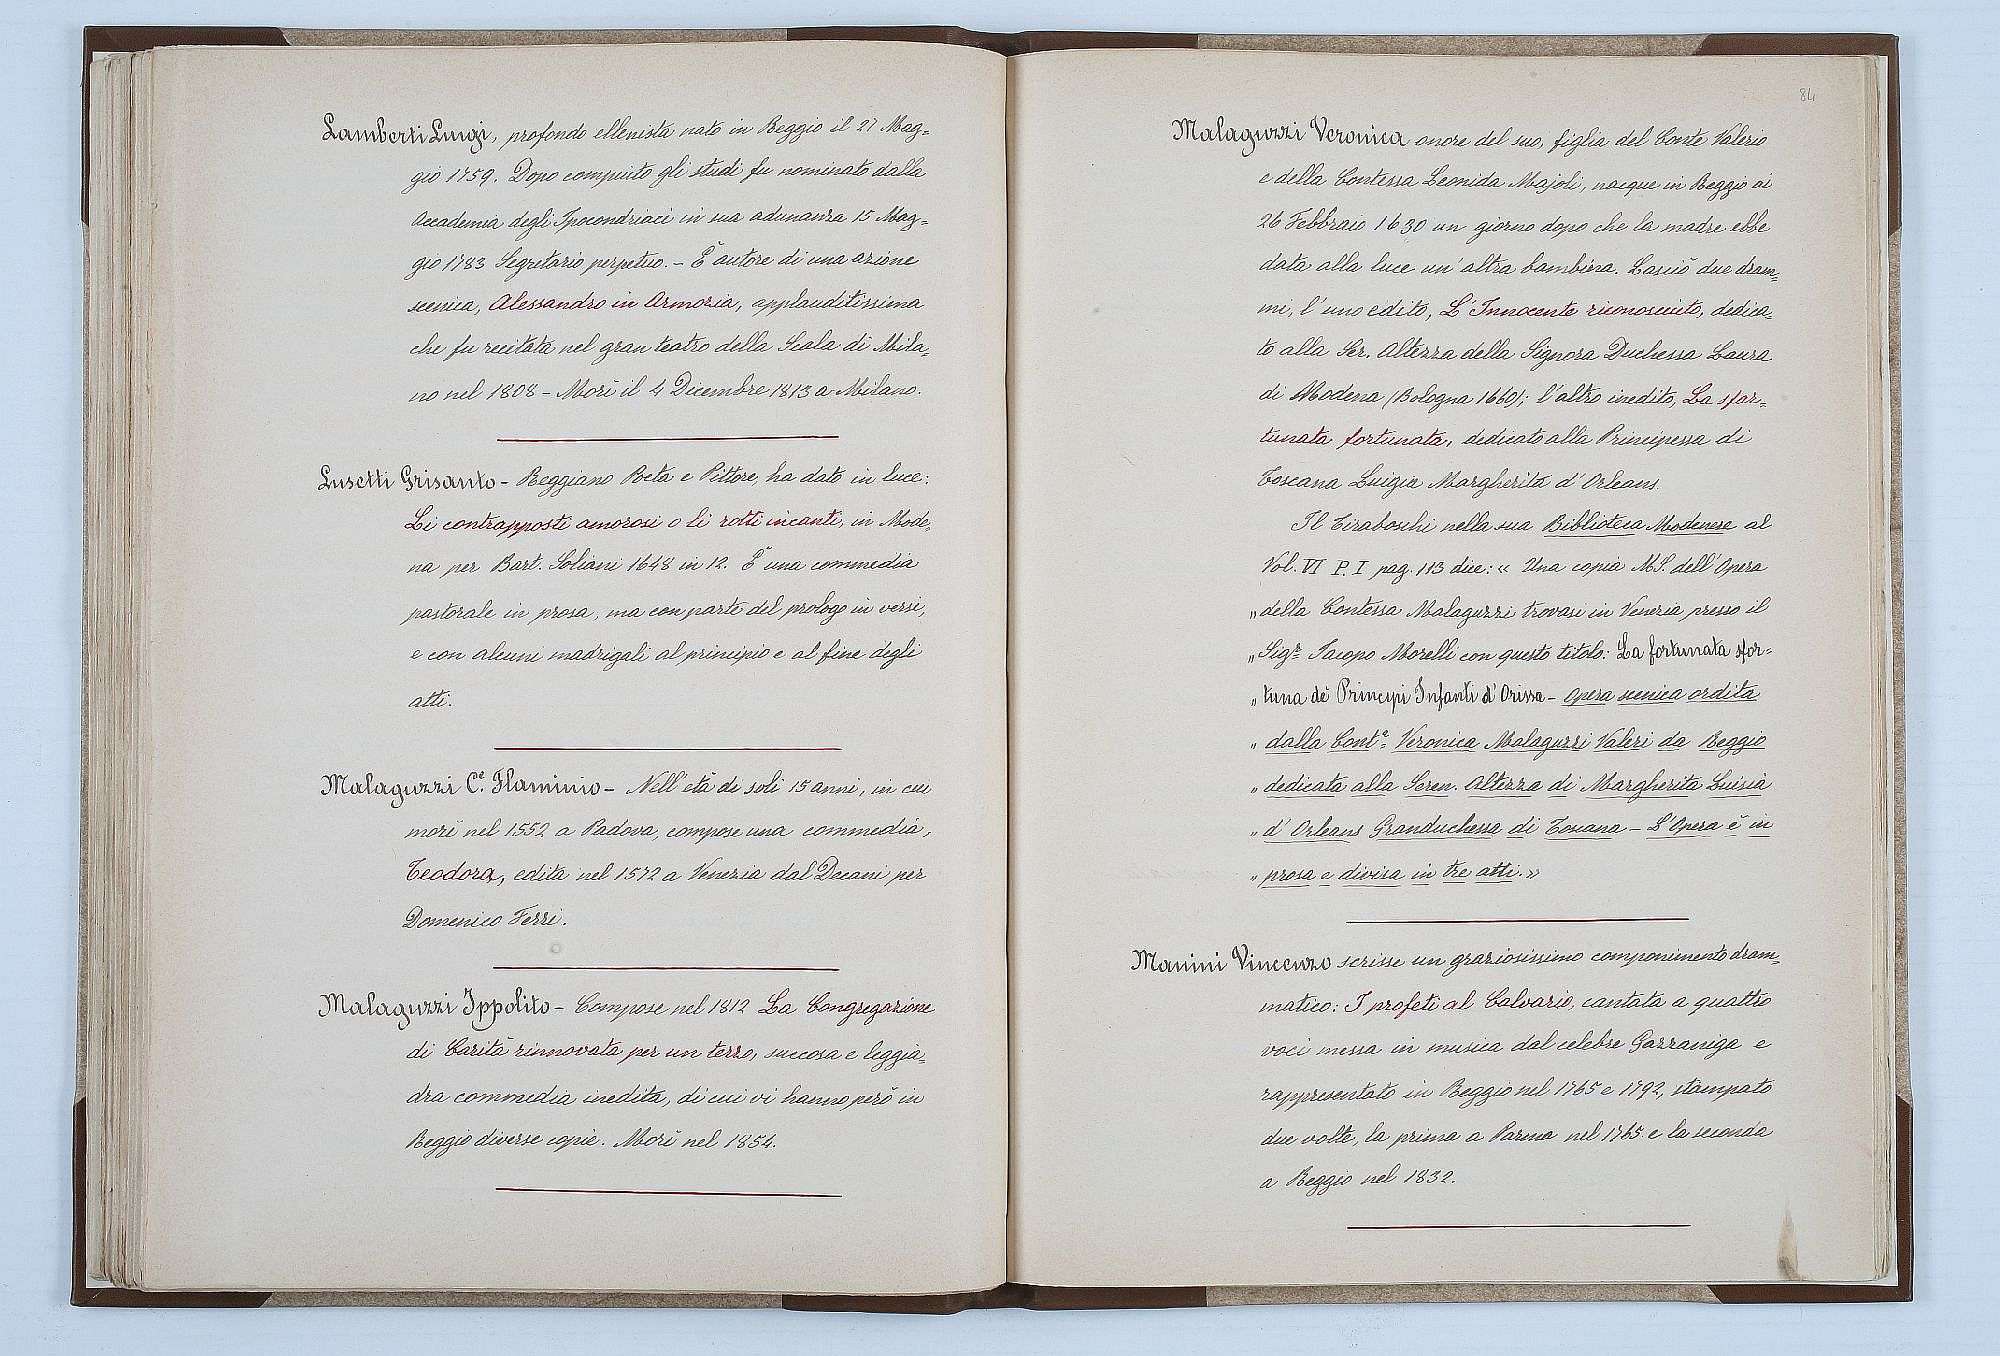 Lamberti Luigi, profondo ellenista nato in Reggio il 27 Mag=
gio 1759. Dopo compiuto gli studi fu nominato dalla
Accademia degli Ipocondriaci in sua adunanza 15 Mag=
gio 1783 Segretario perpetuo. – È autore di una azione
scenica, Alessandro in Armozia, applauditissima
che fu recitata nel gran teatro della Scala di Mila=
no nel 1808 – Morì il 4 Dicembre 1813 a Milano.
Lusetti Grisanto – Reggiano Poeta e Pittore, ha dato in luce:
Li contrapposti amorosi o li rotti incanti, in Mode=
na per Bart. Soliani 1648 in 12. È una commedia
pastorale in prosa, ma con parte del prologo in versi,
e con alcuni madrigali al principio e al fine degli
atti.
Malaguzzi C.e Flaminio – Nell'età di soli 15 anni, in cui
morì nel 1552 a Padova, compose una commedia,
Teodora, edita nel 1572 a Venezia dal Decani per
Domenico Ferri.
Malaguzzi Ippolito – Compose nel 1812 La Congregazione
di Carità rinnovata per un terzo, succosa e leggia=
dra commedia inedita, di cui vi hanno però in
Reggio diverse copie. Morì nel 1854.
84
Malaguzzi Veronica onore del suo, figlia del Conte Valerio
e della Contessa Leonida Majoli, nacque in Reggio ai
26 Febbraio 1630 un giorno dopo che la madre ebbe
data alla luce un'altra bambina. Lasciò due dram=
mi, l'uno edito, L'Innocente riconosciuto, dedica=
to alla Ser. Altezza della Signora Duchessa Laura
di Modena (Bologna 1660); l'altro inedito, La sfor=
tunata fortunata, dedicato alla Principessa di
Toscana Luigia Margherita d'Orleans.
Il Tiraboschi nella sua Biblioteca Modenese al
Vol. VI P. I pag. 113 dice: « Una copia MS. dell'Opera
„ della Contessa Malaguzzi trovasi in Venezia presso il
„ Sigr. Jacopo Morelli con questo titolo: La fortunata sfor=
„ tuna dè Principi Infanti d'Orissa – Opera scenica ordita
„ dalla Cont.a Veronica Malaguzzi Valeri da Reggio
„ dedicata alla Seren. Altezza di Margherita Luisia
„ d'Orleans Granduchessa di Toscana – L'Opera è in
„ prosa e divisa in tre atti. »
Manini Vincenzo scrisse un graziosissimo componimento dram=
matico: I profeti al Calvario, cantata a quattro
voci messa in musica dal celebre Gazzaniga e
rappresentato in Reggio nel 1765 e 1792, stampato
due volte, la prima a Parma nel 1765 e la seconda
a Reggio nel 1832.